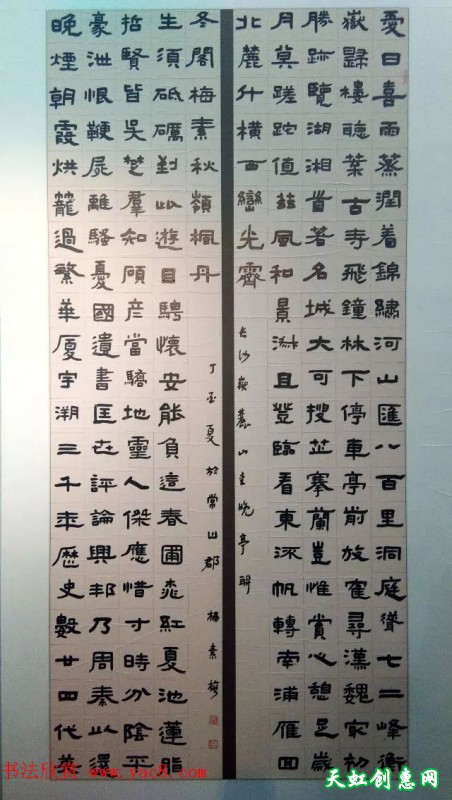 愛日喜雨蒸潤着錦繡河山匯八百里洞庭聳七二峰衡
嶽歸樓聽葉古寺飛鐘林下停車亭前放隺尋漢魏冣初
勝跡覽湖湘首著名城大可搜芷搴蘭豈惟賞心憩足歲
月莫蹉跎值茲風和景淑且登臨看東流帆轉南浦雁回
北麓斗橫西巒光霽
長沙嶽麓山愛晚亭聯
晚煙朝霞烘籠過繁華廈宇溯三千年歷史數廿四代英
豪泄恨鞭屍離騷憂國遺書匡世評論興邦乃周秦以澤
哲賢皆吳楚羣知頋彥當驕地靈人傑應惜寸時分陰平
生須砥礪對此遊目騁懷安能負這春圃桃紅夏池蓮脂
冬閣梅素秋嶺楓丹
丁酉夏於常山郡 楊素
书法欣赏 www.yac8.com
天虹创惠网